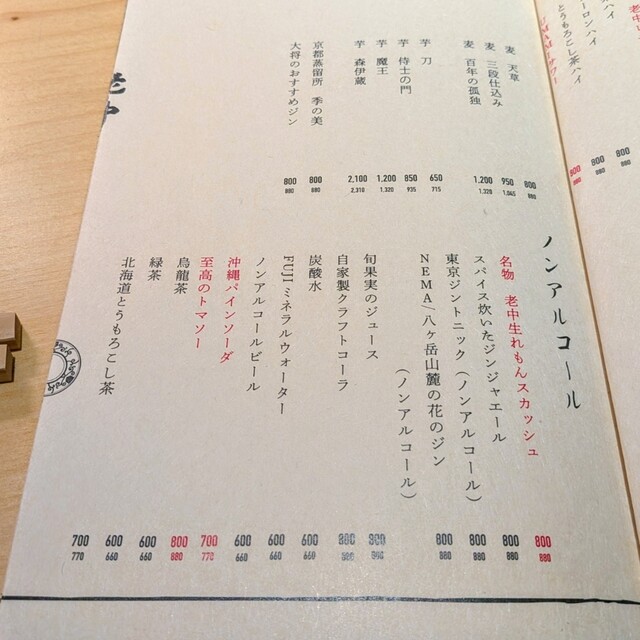 老中
ーロンハイ
とうもろこし茶ハイ
UMAMIサワー
880
800
800
880
麦 天草
800
880
麦 三段仕込み
950
1,045
麦 百年の孤独
1,200
1,320
芋 刀
650
715
芋 侍士の門
850
935
芋 魔王
1,200
1,320
芋 森伊蔵
2,100
2,310
京都蒸留所 季の美
800
880
大将のおすすめジン
800
880
ノンアルコール
名物 老中生れもんスカッシュ
800
880
スパイス炊いたジンジャエール
800
880
東京ジントニック（ノンアルコール）
800
880
NEMA／八ヶ岳山麓の花のジン
（ノンアルコール）
800
880
旬果実のジュース
自家製クラフトコーラ
炭酸水
600
660
FUJIミネラルウォーター
600
660
ノンアルコールビール
600
660
沖縄パインソーダ
700
770
至高のトマソー
800
880
烏龍茶
600
660
緑茶
600
660
北海道とうもろこし茶
700
770